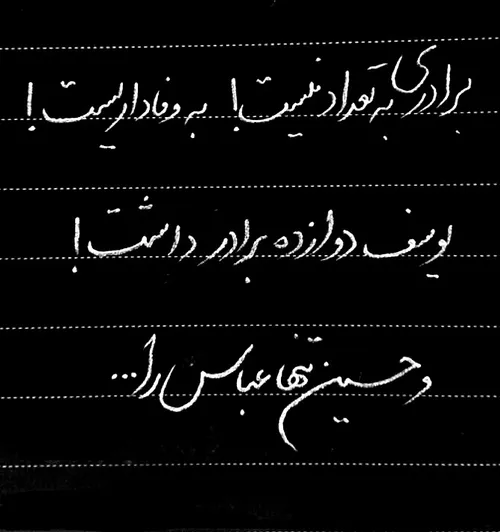 برادری به تعداد نیست! به وفاداریست!
یوسف دوازده برادر داشت!
و حسین تنها عباس را...